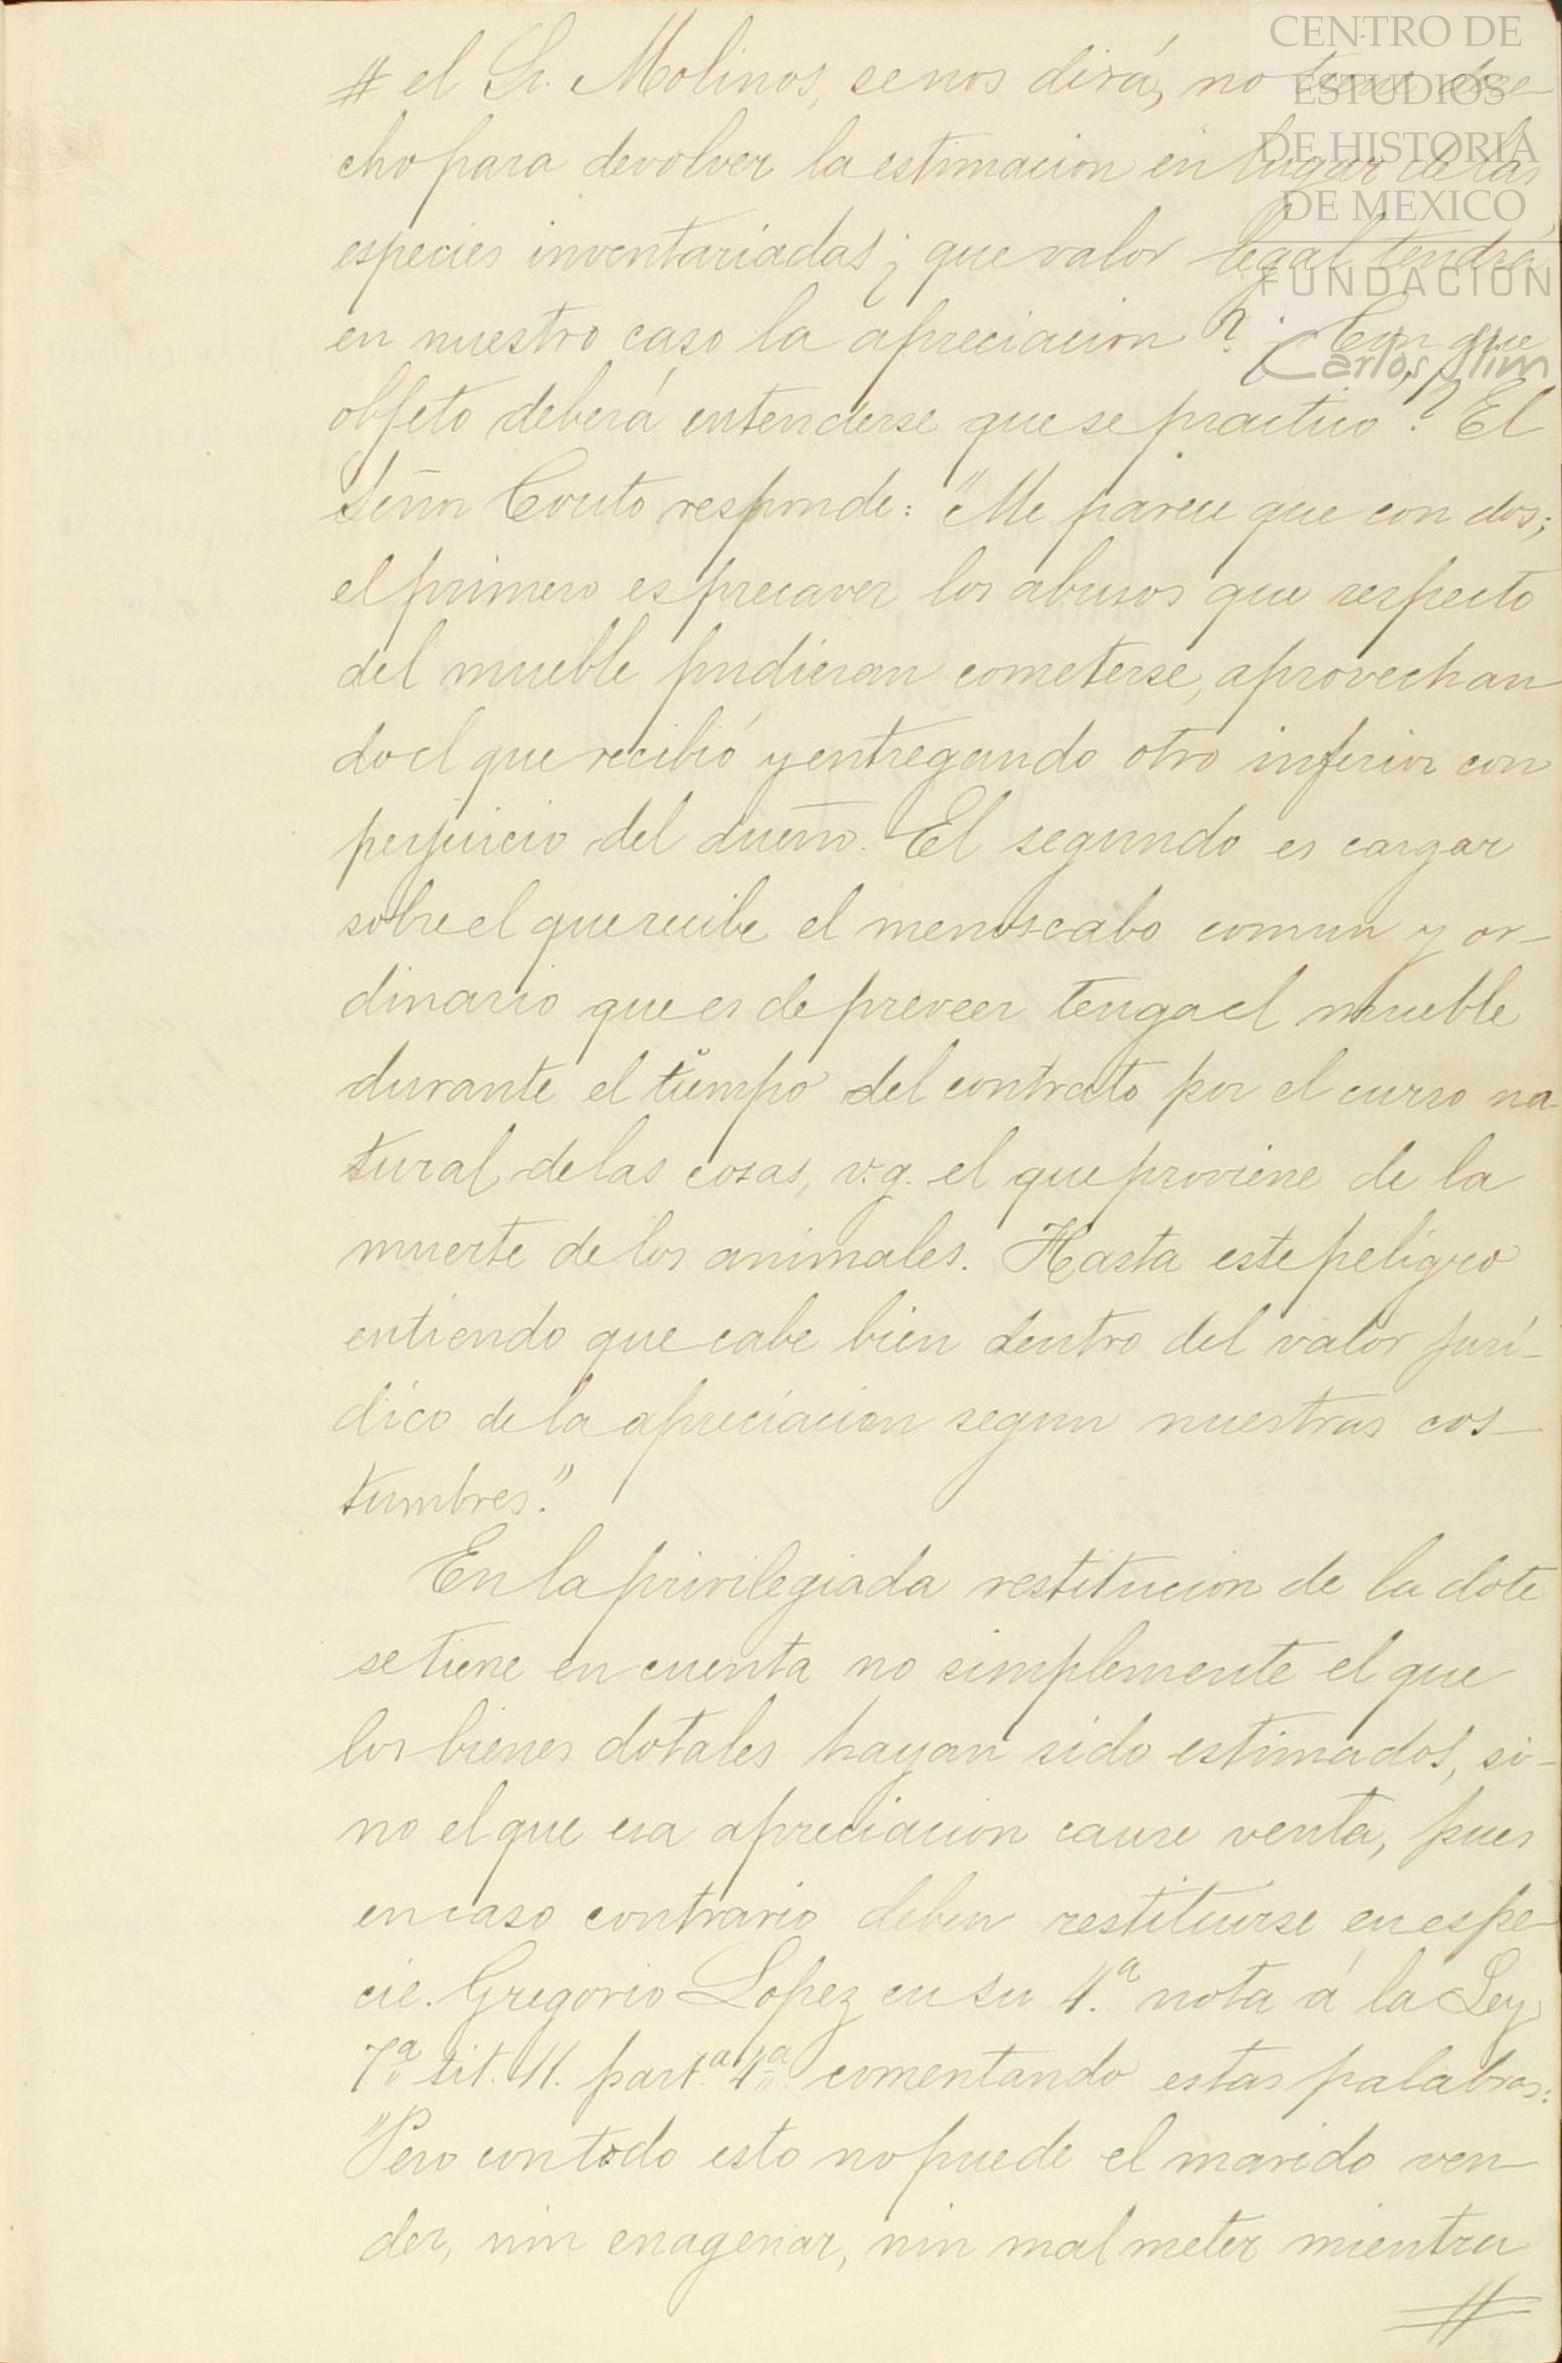 # el Sr. Molinos, se nos dirá, no tiene dere-
cho para devolver la estimacion en lugar de las
especies inventariadas ¿ que valor legal tendrá
en nuestro caso la apreciacion? ¿Con que
objeto deberá entenderse que se practicó? El
Señor Couto responde: "Me parece que con dos;
el primero es precaver los abusos que respecto
del mueble pudieran cometerse, aprovechan
do el que recibió y entregando otro inferior con
perjuicio del dueño. El segundo es cargar
sobre el que recibe el menoscabo comun y or-
dinario que es de preveer tenga el mueble
durante el tiempo del contrato por el curso na-
tural de las cosas, v.g. el que proviene de la
muerte de los animales. Hasta este peligro
entiendo que cabe bien dentro del valor juri-
dico de la apreciacion segun nuestras cos-
tumbres."
En la privilegiada restitucion de la dote
se tiene en cuenta no simplemente el que
los bienes dotales hayan sido estimados, si-
no el que esa apreciacion cause venta, pues
en caso contrario deben restituirse en espe-
cie. Gregorio Lopez en su 4.ª nota á la Ley
7.ª tit. 11. part.ª 4.ª comentando estas palabras:
"Pero con todo esto no puede el marido ven-
der, nin enagenar, nin mal meter mientra
#
CENTRO DE
ESTUDIOS
DE HISTORIA
DE MEXICO
FUNDACION
Carlos Slim